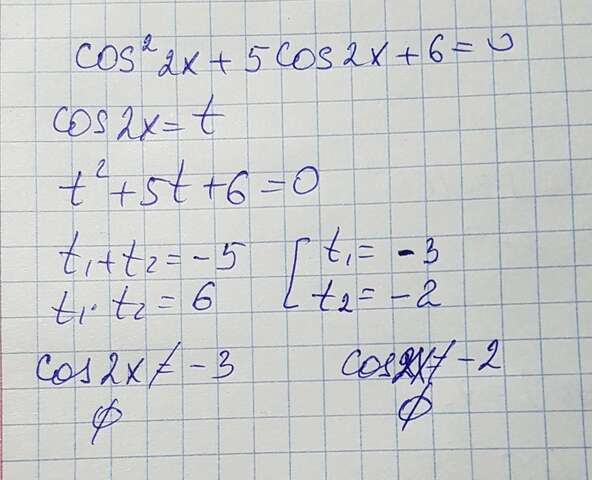 cos² 2x + 5 cos 2x + 6 = 0
cos 2x = t
t² + 5t + 6 = 0
t₁ + t₂ = -5 [ t₁ = -3
t₁ · t₂ = 6 t₂ = -2
cos 2x ≠ -3 cos 2x ≠ -2
∅ ∅